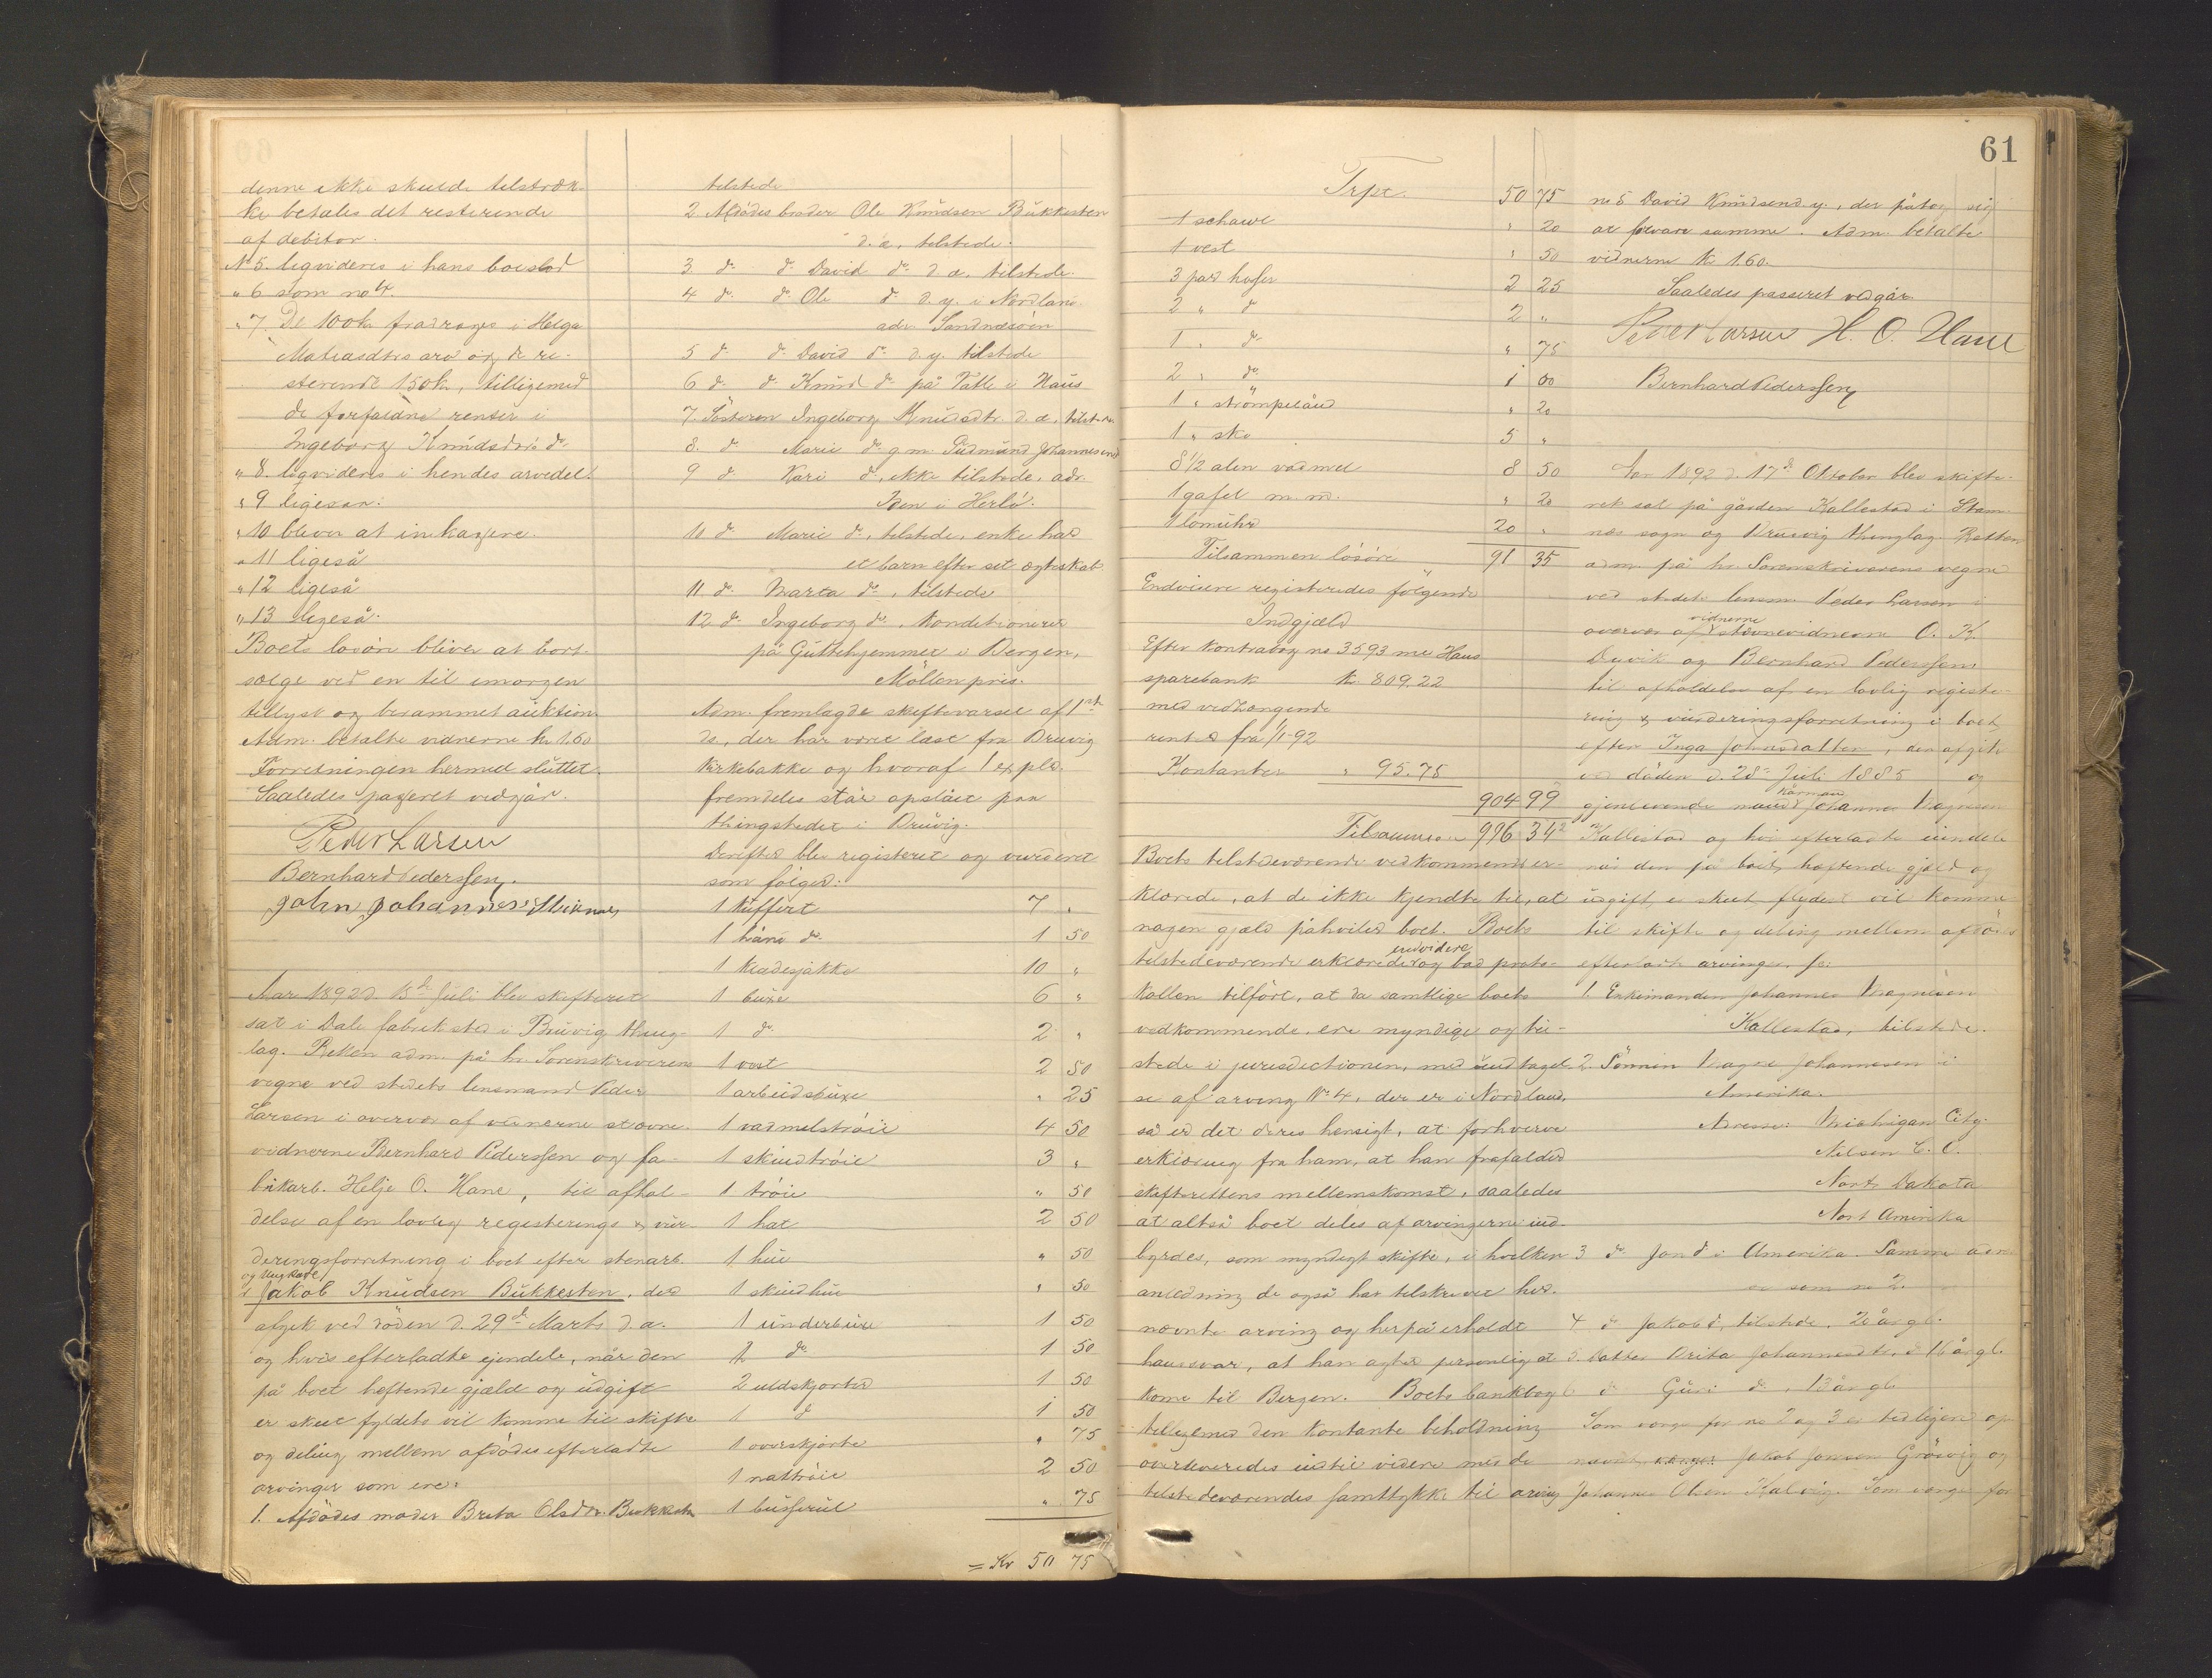 denne ikke skulde tilstræk-
ke betales det resterende
af debitor.
No 5. liqvideres i hans boeslod
" 6 som no 4.
" 7. De 100 kr fradrages i Helga
Matiasdtrs arv og de re-
sterende 150 kr, tilligemed
de forfaldne renter i
Ingeborg Knudsdtrs do
" 8. liqvideres i hendes arvedel.
" 9 ligesaa.
" 10 bliver at inkassere.
" 11 ligeså
" 12 ligeså
" 13 ligeså.
Boets løsøre bliver at bort-
sælge ved en til imorgen
tillyst og berammet auktion.
Adm. betalte vidnerne kr 1.60
Forretningen hermed sluttet.
Saaledes passeret vedgår.
Peder Larsen
Bernhard Pederssen.
John Johannes
Aar 1892 d. 15de Juli blev skifteret
sat i Dale fabriksted i Bruvig thing-
lag. Retten adm. på hr. Sorenskriverens
vegne ved stedets lensmand Peder
Larsen i overvær af vidnerne stævne-
vidnerne Bernhard Pederssen og fa-
brikarb. Helje O. Hane, til afhol-
delse af en lovlig registerings & vur-
deringsforretning i boet efter stenarb.
og ungkarl
Jakob Knudsen Bukkesten, der
afgik ved døden d. 29de Marts d. a.
og hvis efterladte ejendele, når den
på boet heftende gjæld og udgift
er skeet fyldets vil komme til skifte
og deling mellem afdødes efterladte
arvinger som ere:
1. Afdødes moder Brita Olsdtr. Bukkesten
tilstede
2. Afdødes broder Ole Knudsen Bukkesten
d. æ. tilstede.
3 do do David do d. æ. tilstede.
4 do do Ole do d. y. i Nordland
adr. Sandnesøen
5 do do David do d. y. tilstede
6 do do Knud do på Tatle i Haus
7. Søsteren Ingeborg Knudsdtr. d. æ. tilstede
8. do Marie do g. m. Gudmund Johannesen
9 do Kari do, ikke tilstede, adr.
i Herlø.
10 do Marie do, tilstede, enke har
et barn efter sit ægteskab
11 do Marta do, tilstede
12 do Ingeborg do, konditionerer
på Guttehjemmet i Bergen,
Møllenpris.
Adm. fremlagde skiftevarsel af 1ste
ds, der har været læst fra Bruvig
kirkebakke og hvoraf 1 expl.
fremdeles står opslået paa
thingstedet i Bruvig.
Derefter blev registeret og vurderet
som følger:
1 kuffert 7 "
1 do 1 50
1 klædesjakke 10 "
1 buxe 6 "
1 do 2 "
1 vest 2 50
1 arbeidsbuxe " 25
1 vadmelstrøie 4 50
1 skindtrøie 3 "
1 trøie " 50
1 hat 2 50
1 hue " 50
1 skindhue " 50
1 underbuxe 1 50
1 do 1 50
2 uldskjorter 1 50
1 do 1 50
1 overskjorte " 75
1 nattrøie 2 50
1 busserul " 75
= Kr 50 75
61
Trpt. 50 75
1 schawl " 20
1 vest " 50
3 par hoser 2 25
2 " do 2 "
1 " do " 75
2 " do 1 00
1 " strømpelåud " 20
1 " sko 5 "
8 1/2 alen vadmel 8 50
1 gafel m. m. " 20
1 lomuhr 20 "
Tilsammen løsøre 91 35
Endvidere registeredes følgende
Indgjæld
Efter kontrabog no 3593 med Haus
sparebank kr. 809.22
med vedhængende
rente fra 1/1-92
Kontanter " 95.75
904 99
Tilsammen 996 34
Boets tilstedeværende vedkommende er-
klærede, at de ikke kjendte til, at
nogen gjæld påhviler boet. Boets
endvidere
tilstedeværende erklærede og bad proto-
kollen tilført, at da samtlige boets
vedkommende ere myndige og til-
stede i jurisdictionen, med undtagel-
se af arving No 4, der er i Nordland,
så er det deres hensigt, at forhverve
erklæring fra ham, at han frafalder
skifterettens mellemkomst, saaledes
at altså boet deles af arvingerne ind-
byrdes, som myndigt skifte, i hvilken
anledning de også har tilskrevet her.
nævnte arving og herpå erholdt
hans svar, at han agter personlig at
komme til Bergen. Boets bankbog
tilligemed den kontante beholdning
overleveredes indtil videre med de
tilstedeværendes samtykke til arving
no 5 David Knudsen d. y., der påtog sig
at forvare samme. Adm. betalte
vidnerne kr 1.60.
Saaledes passeret vedgår
Peder Larsen H. O. Hane
Bernhard Pederssen
Aar 1892 d. 17de Oktober blev skifte-
ret sat på gården Kallestad i Stam-
næs sogn og Bruvig thinglag. Retten
adm. på hr. Sorenskriverens vegne
ved stedets lensm. Peder Larsen i
vidnerne
overvær af stævnevidnerne O. K.
Duvik og Bernhard Pederssen
til afholdelse af en lovlig registe-
ring & vurderingsforretning i boet
efter Inga Johnsdatter, der afgik
ved døden d. 28de Juli 1885 og
gjenlevende mand Johannes Magnesen
Kallestad og hvis efterladte eiendele
når den på boet heftende gjæld og
udgift er skeet fyldest vil komme
til skifte og deling mellem afdødes
efterladte arvinger, so:
1. Enkemanden Johannes Magnesen
Kallestad, tilstede.
2. Sønnen Magne Johannesen i
Amerika.
Adresse: Michigan City.
Nelson C. O.
Nort Dakota
Nort Amerika
3 do Jon do i Amerika. Samme adr.
som no 2.
4 do Jakob do, tilstede, 20 år gl.
5. Datter Brita Johannesdtr., 16 år gl.
6 do Guri do, 13 år gl.
Som værge for no 2 og 3 er tidligere op-
nævnt Jakob Jonsen Grøsvig og
Johannes Olsen Kalvig. Som værge for